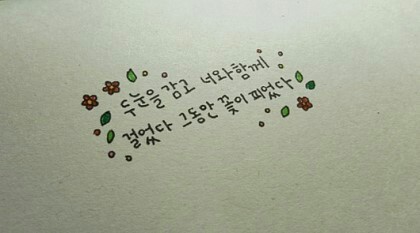 두 눈을 감고 너와 함께
걸었다 그동안 꽃이 피었다